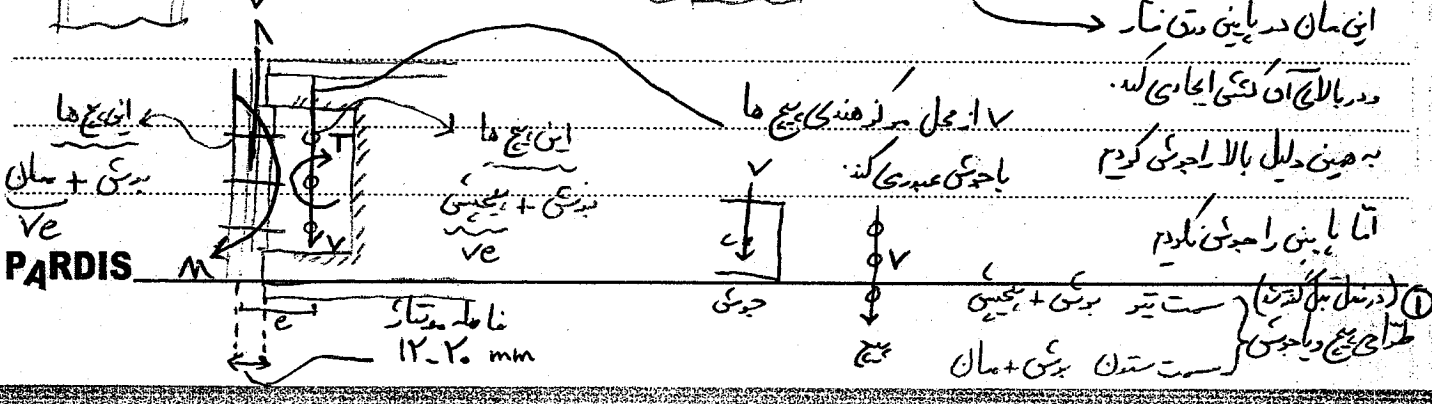 این ممان در پایین ورق فشار
و در بالای آن کشش ایجاد می کند.
به همین دلیل بالا را جوش کردیم
اما پایین را جوش نکردیم
V از محل مرکز هندسی پیچ ها
یا جوش عبور می کند.
این پیچ ها
برش + پیچش
Ve
این پیچ ها
برش + ممان
Ve
T
V
M
V
جوش
V
پیچ
e
فاصله مونتاژ
۱۲-۲۰ mm
PARDIS
① (در فصل قبل گذشت)
طراحی پیچ و یا جوش
سمت تیر برش + پیچش
سمت ستون برش + ممان